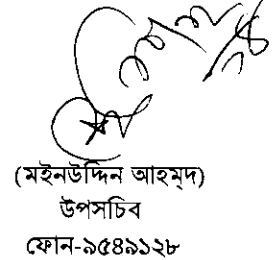 (মইনউদ্দিন আহমদ)
উপসচিব
ফোন-৯৫৪৯১২৮